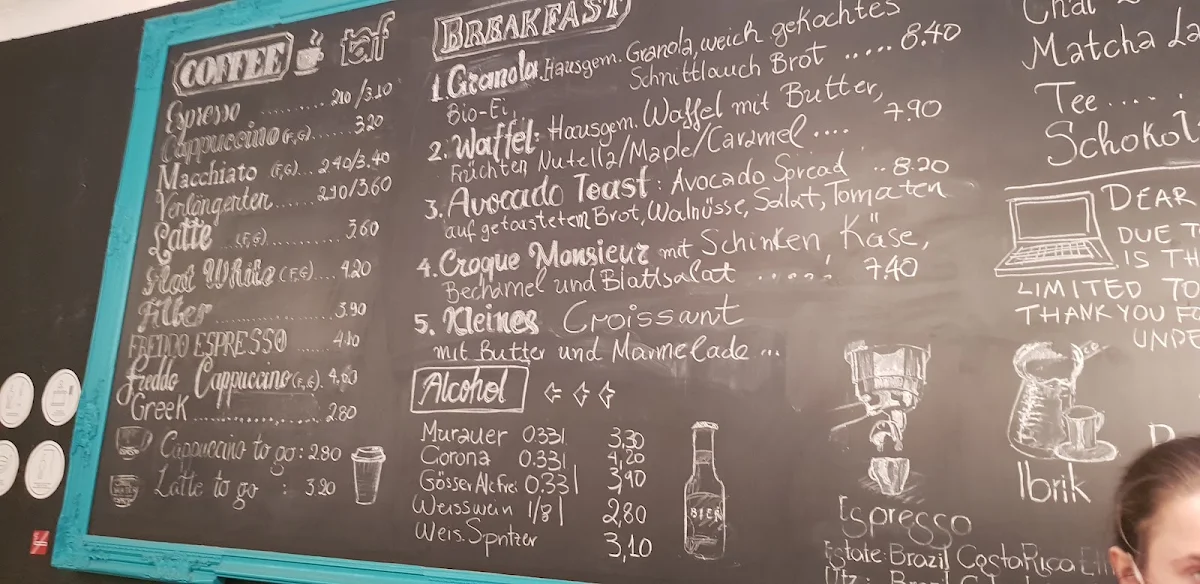 COFFEE taf
Espresso .......... 2.10/3.10
Cappuccino (F,G) ...... 3.20
Macchiato (F,G)... 2.40/3.40
Verlängerter...... 2.90/3.60
Latte (F,G) ............ 3.60
Flat White (F,G).... 4.20
Filter ................ 3.90
FREDDO ESPRESSO ......
Freddo Cappuccino (F,G).
Greek ................ 2.80
Cappuccino to go : 2.80
Latte to go : 3.20
BREAKFAST
1. Granola. Hausgem. Granola, weich gekochtes
Bio-Ei, Schnittlauch Brot ..... 8.40
2. Waffel: Hausgem. Waffel mit Butter,
Früchten Nutella/Maple/Caramel .... 7.90
3. Avocado Toast: Avocado Spread .. 8.20
auf getoastetem Brot, Walnüsse, Salat, Tomaten
4. Croque Monsieur mit Schinken Käse,
Bechamel und Blattsalat ..... 7.40
5. Kleines Croissant
mit Butter und Marmelade ...
Alcohol
Murauer 0.33l 3,30
Corona 0.33l 4,20
Gösser Alc frei 0.33l 3,90
Weisswein 1/8l 2,80
Weis. Spritzer 3,10
BIER
Chai
Matcha La
Tee.....
Schokol
DEAR
DUE T
IS TH
LIMITED TO
THANK YOU FO
UNDE
Espresso
Ibrik
Estate: Brazil Costa Rica